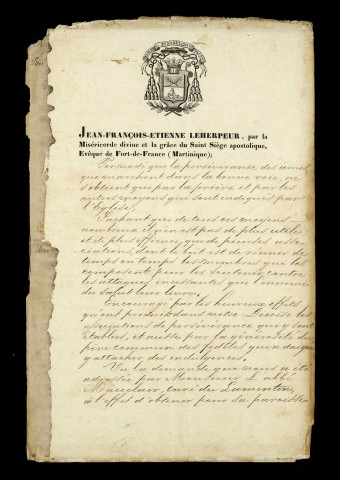 JEAN-FRANÇOIS-ETIENNE LEHERPEUR, par la
Miséricorde divine et la grâce du Saint Siège apostolique,
Evêque de Fort-de-France (Martinique);
Persuadé que la persévérance des âmes
qui marchent dans la bonne voie, ne
s'obtient que par la prière et par les
autres moyens qui sont indiqués par
l'Eglise,
Sachant que de tous ces moyens
nombreux il n'en est pas de plus utiles
et de plus efficaces que de pieuses asso-
ciations dont le but est de réunir de
temps en temps les membres qui les
composent pour les soutenir contre
les attaques incessantes que l'ennemi
du salut leur livre,
Encouragé par les heureux effets
qu'ont produits dans notre Diocèse les
associations de persévérance qui y sont
établies, et aussi par la générosité du
père commun des fidèles qui a daigné
y attacher des indulgences,
Vu la demande qui nous a été
adressée par Monsieur l'abbé
curé du Lamentin,
à l'effet d'obtenir pour sa paroisse